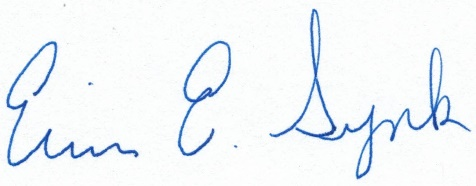 Erin E. Synk